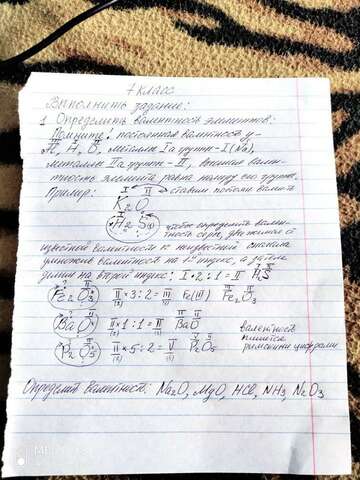 7 класс
Выполнить задание:
1. Определить валентность элементов:
Помните! постоянная валентность у
H, O, металлы Iа групп - I (Na),
металлы IIа групп - II, высшая вален-
тность элемента равна номеру его группы.
Пример: I II ставим постоян. валент
K2O
H2S(1) чтобы определить вален-
тность серы, движемся от
известной валентности к неизвестной сначала
умножив валентность на 1й индекс, а затем
делим на второй индекс: I · 2 : 1 = II H2S
Fe2O3 II × 3 : 2 = III Fe(III) Fe2O3
BaO II × 1 : 1 = II BaO
валентность
пишется
римскими цифрами
P2O5 II × 5 : 2 = V P2O5
Определить валентность: Na2O, MgO, HCl, NH3, N2O3